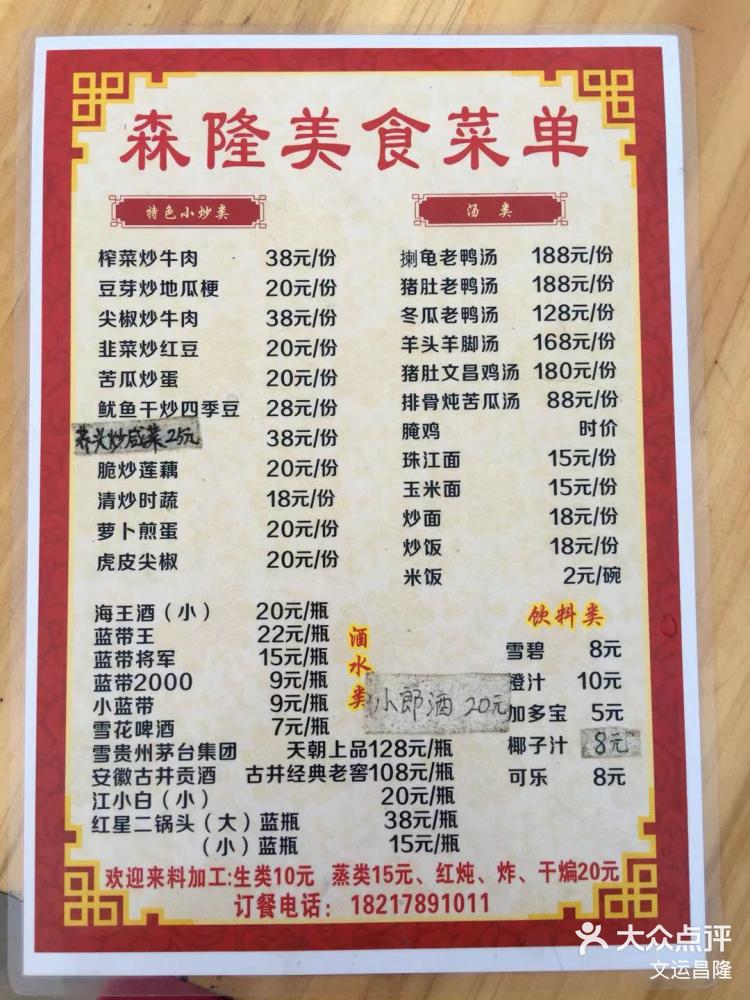 森隆美食菜单
特色小炒类
榨菜炒牛肉 38元/份
豆芽炒地瓜梗 20元/份
尖椒炒牛肉 38元/份
韭菜炒红豆 20元/份
苦瓜炒蛋 20元/份
鱿鱼干炒四季豆 28元/份
荞头炒咸菜25元 38元/份
脆炒莲藕 20元/份
清炒时蔬 18元/份
萝卜煎蛋 20元/份
虎皮尖椒 20元/份
汤类
揦龟老鸭汤 188元/份
猪肚老鸭汤 188元/份
冬瓜老鸭汤 128元/份
羊头羊脚汤 168元/份
猪肚文昌鸡汤 180元/份
排骨炖苦瓜汤 88元/份
腌鸡 时价
珠江面 15元/份
玉米面 15元/份
炒面 18元/份
炒饭 18元/份
米饭 2元/碗
酒水类
海王酒（小） 20元/瓶
蓝带王 22元/瓶
蓝带将军 15元/瓶
蓝带2000 9元/瓶
小蓝带 9元/瓶
雪花啤酒 7元/瓶
雪贵州茅台集团 天朝上品128元/瓶
安徽古井贡酒 古井经典老窖108元/瓶
江小白（小） 20元/瓶
红星二锅头（大）蓝瓶 38元/瓶
（小）蓝瓶 15元/瓶
小郎酒 20元
饮料类
雪碧 8元
橙汁 10元
加多宝 5元
椰子汁 8元
可乐 8元
欢迎来料加工:生类10元 蒸类15元、红炖、炸、干煸20元
订餐电话：18217891011
大众点评
文运昌隆